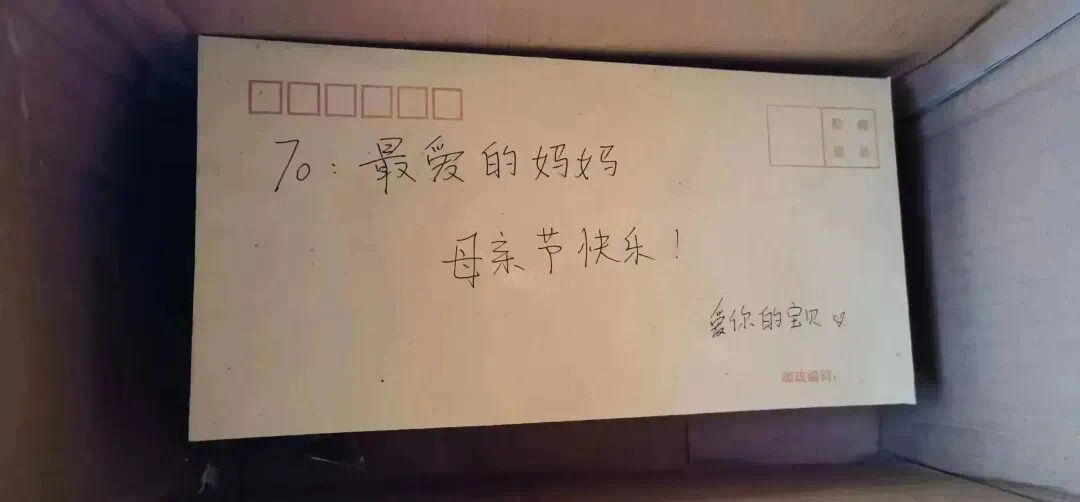 To：最爱的妈妈
母亲节快乐！
爱你的宝贝
邮政编码：